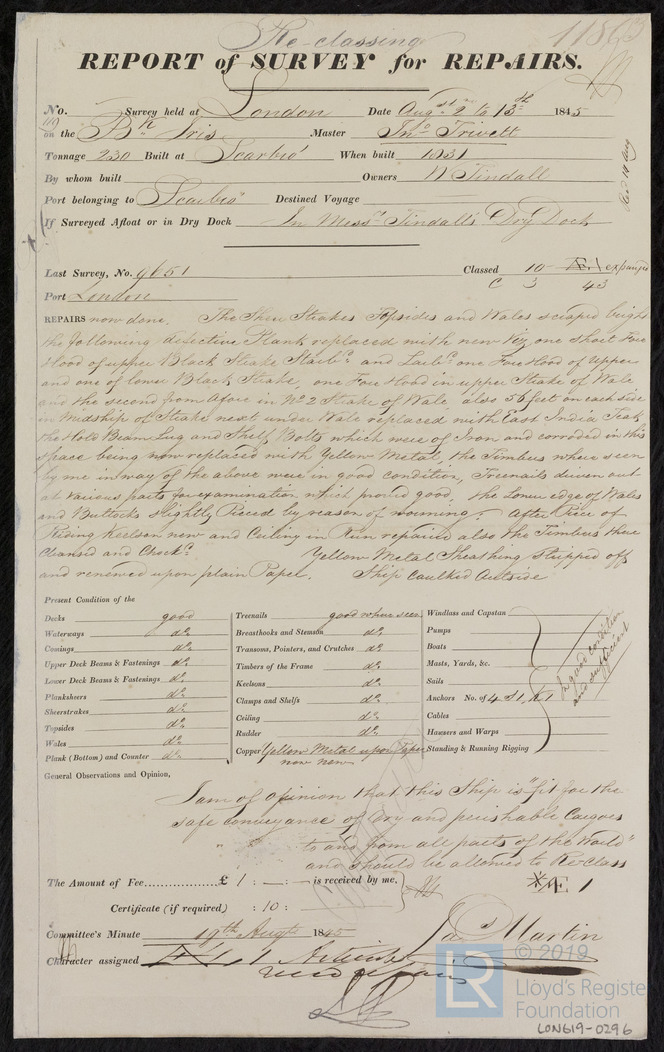 Re-classing 11863
REPORT of SURVEY for REPAIRS.
No. Survey held at London Date Augst 9 to 13th 1845
on the Bk Iris Master Jno Trivett
Tonnage 230 Built at Scarbro' When built 1831
By whom built Owners W Tindall
Port belonging to Scarbro' Destined Voyage
If Surveyed Afloat or in Dry Dock In Messrs Tindall's Dry Dock
Last Survey, No. 9651 Classed 10 expunged
C 3 43
Port London
REPAIRS now done. The Sheer Strakes Topsides and Wales scraped bright
the following defective Plank replaced with new Viz, one short Fore
Hood of upper Black Strake Starbd and Larbd one Fore Hood of Upper
and one of lower Black Strake, one Fore Hood in upper Strake of Wale
and the second from afore in No 2 Strake of Wale also 56 feet on each side
in Midship of Strake next under Wale replaced with East India Teak
the Hold Beam Lug and Shelf Bolts which were of Iron and corroded in this
space being now replaced with Yellow Metal, the Timbers where seen
by me in way of the above were in good condition, Treenails driven out
at various parts for examination which proved good. the Lower edge of Wales
and Buttocks slightly Pieced by reason of . After Piece of
Riding Keelson new and Ceiling in Run repaired also the Timbers there
Cleansed and Chockd. Yellow Metal Sheathing stripped off
and renewed upon plain Paper. Ship caulked outside
Present Condition of the
Decks good
Waterways do.
Comings do.
Upper Deck Beams & Fastenings do.
Lower Deck Beams & Fastenings do.
Planksheers do.
Sheerstrakes do.
Topsides do.
Wales do.
Plank (Bottom) and Counter do.
Treenails good where seen
Breasthooks and Stemson do.
Transoms, Pointers, and Crutches do.
Timbers of the Frame do.
Keelsons do.
Clamps and Shelfs do.
Ceiling do.
Rudder do.
Copper Yellow Metal upon Paper
now new
Windlass and Capstan
Pumps
Boats
Masts, Yards, &c.
Sails
Anchors No. of 4
Cables
Hawsers and Warps
Standing & Running Rigging
In good condition
and sufficient
General Observations and Opinion,
I am of opinion that this Ship is "fit for the
safe conveyance of dry and perishable Cargoes
" " to and from all parts of the World"
and should be allowed to Re-Class
Æ 1
The Amount of Fee £ 1 : — : — is received by me,
Certificate (if required) : 10 :
Committee's Minute 19th Augt 1845
Jas Martin
Character assigned
© 2019
LR
Lloyd's Register
Foundation
LON619-0296